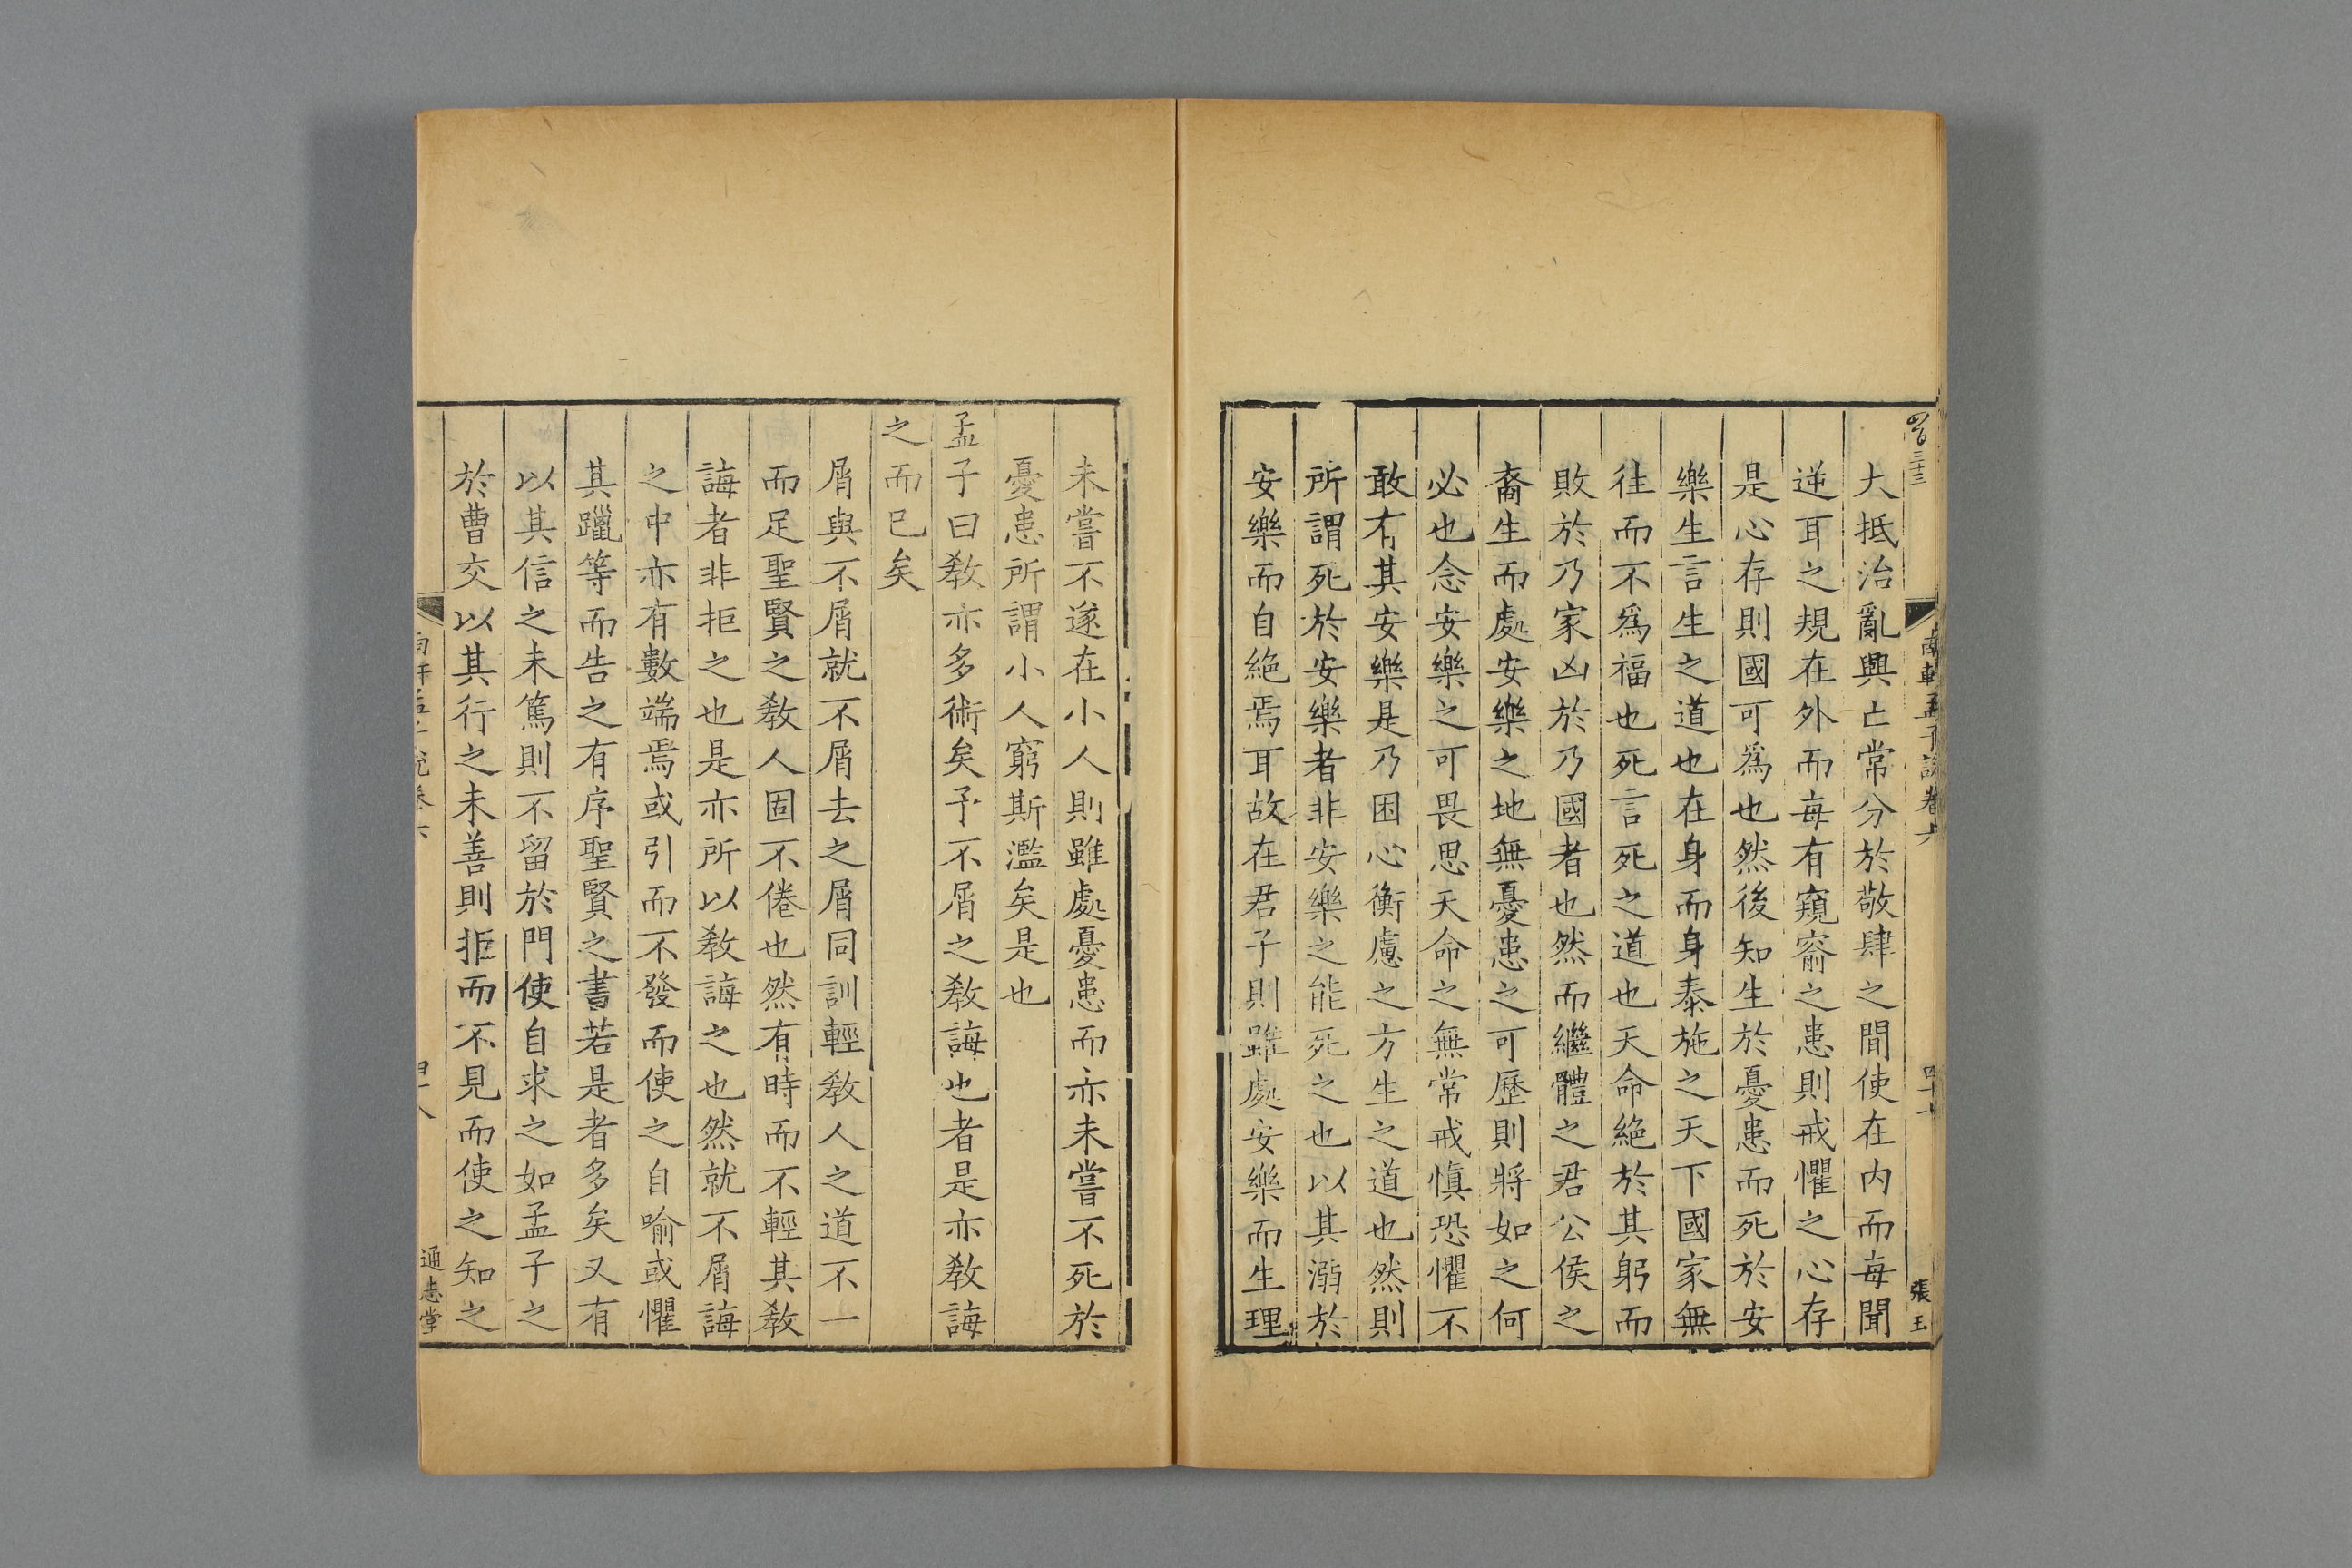 大抵治亂興亡常分於敬肆之間使在内而毎聞
逆耳之規在外而毎有窺窬之患則戒懼之心存
是心存則國可爲也然後知生於憂患而死於安
樂生言生之道也在身而身泰施之天下國家無
往而不爲福也死言死之道也天命絶於其躬而
敗於乃家凶於乃國者也然而繼體之君公侯之
裔生而處安樂之地無憂患之可歷則將如之何
必也念安樂之可畏思天命之無常戒愼恐懼不
敢有其安樂是乃困心衡慮之方生之道也然則
所謂死於安樂者非安樂之能死之也以其溺於
安樂而自絶焉耳故在君子則雖處安樂而生理
南軒孟子說卷六
張玉
未嘗不遂在小人則雖處憂患而亦未嘗不死於
憂患所謂小人窮斯濫矣是也
孟子曰敎亦多術矣予不屑之敎誨也者是亦敎誨
之而已矣
屑與不屑就不屑去之屑同訓輕敎人之道不一
而足聖賢之敎人固不倦也然有時而不輕其敎
誨者非拒之也是亦所以敎誨之也然就不屑誨
之中亦有數端焉或引而不發而使之自喻或懼
其躐等而告之有序聖賢之書若是者多矣又有
以其信之未篤則不留於門使自求之如孟子之
於曹交以其行之未善則拒而不見而使之知之
南軒孟子說卷六
四十八
通志堂